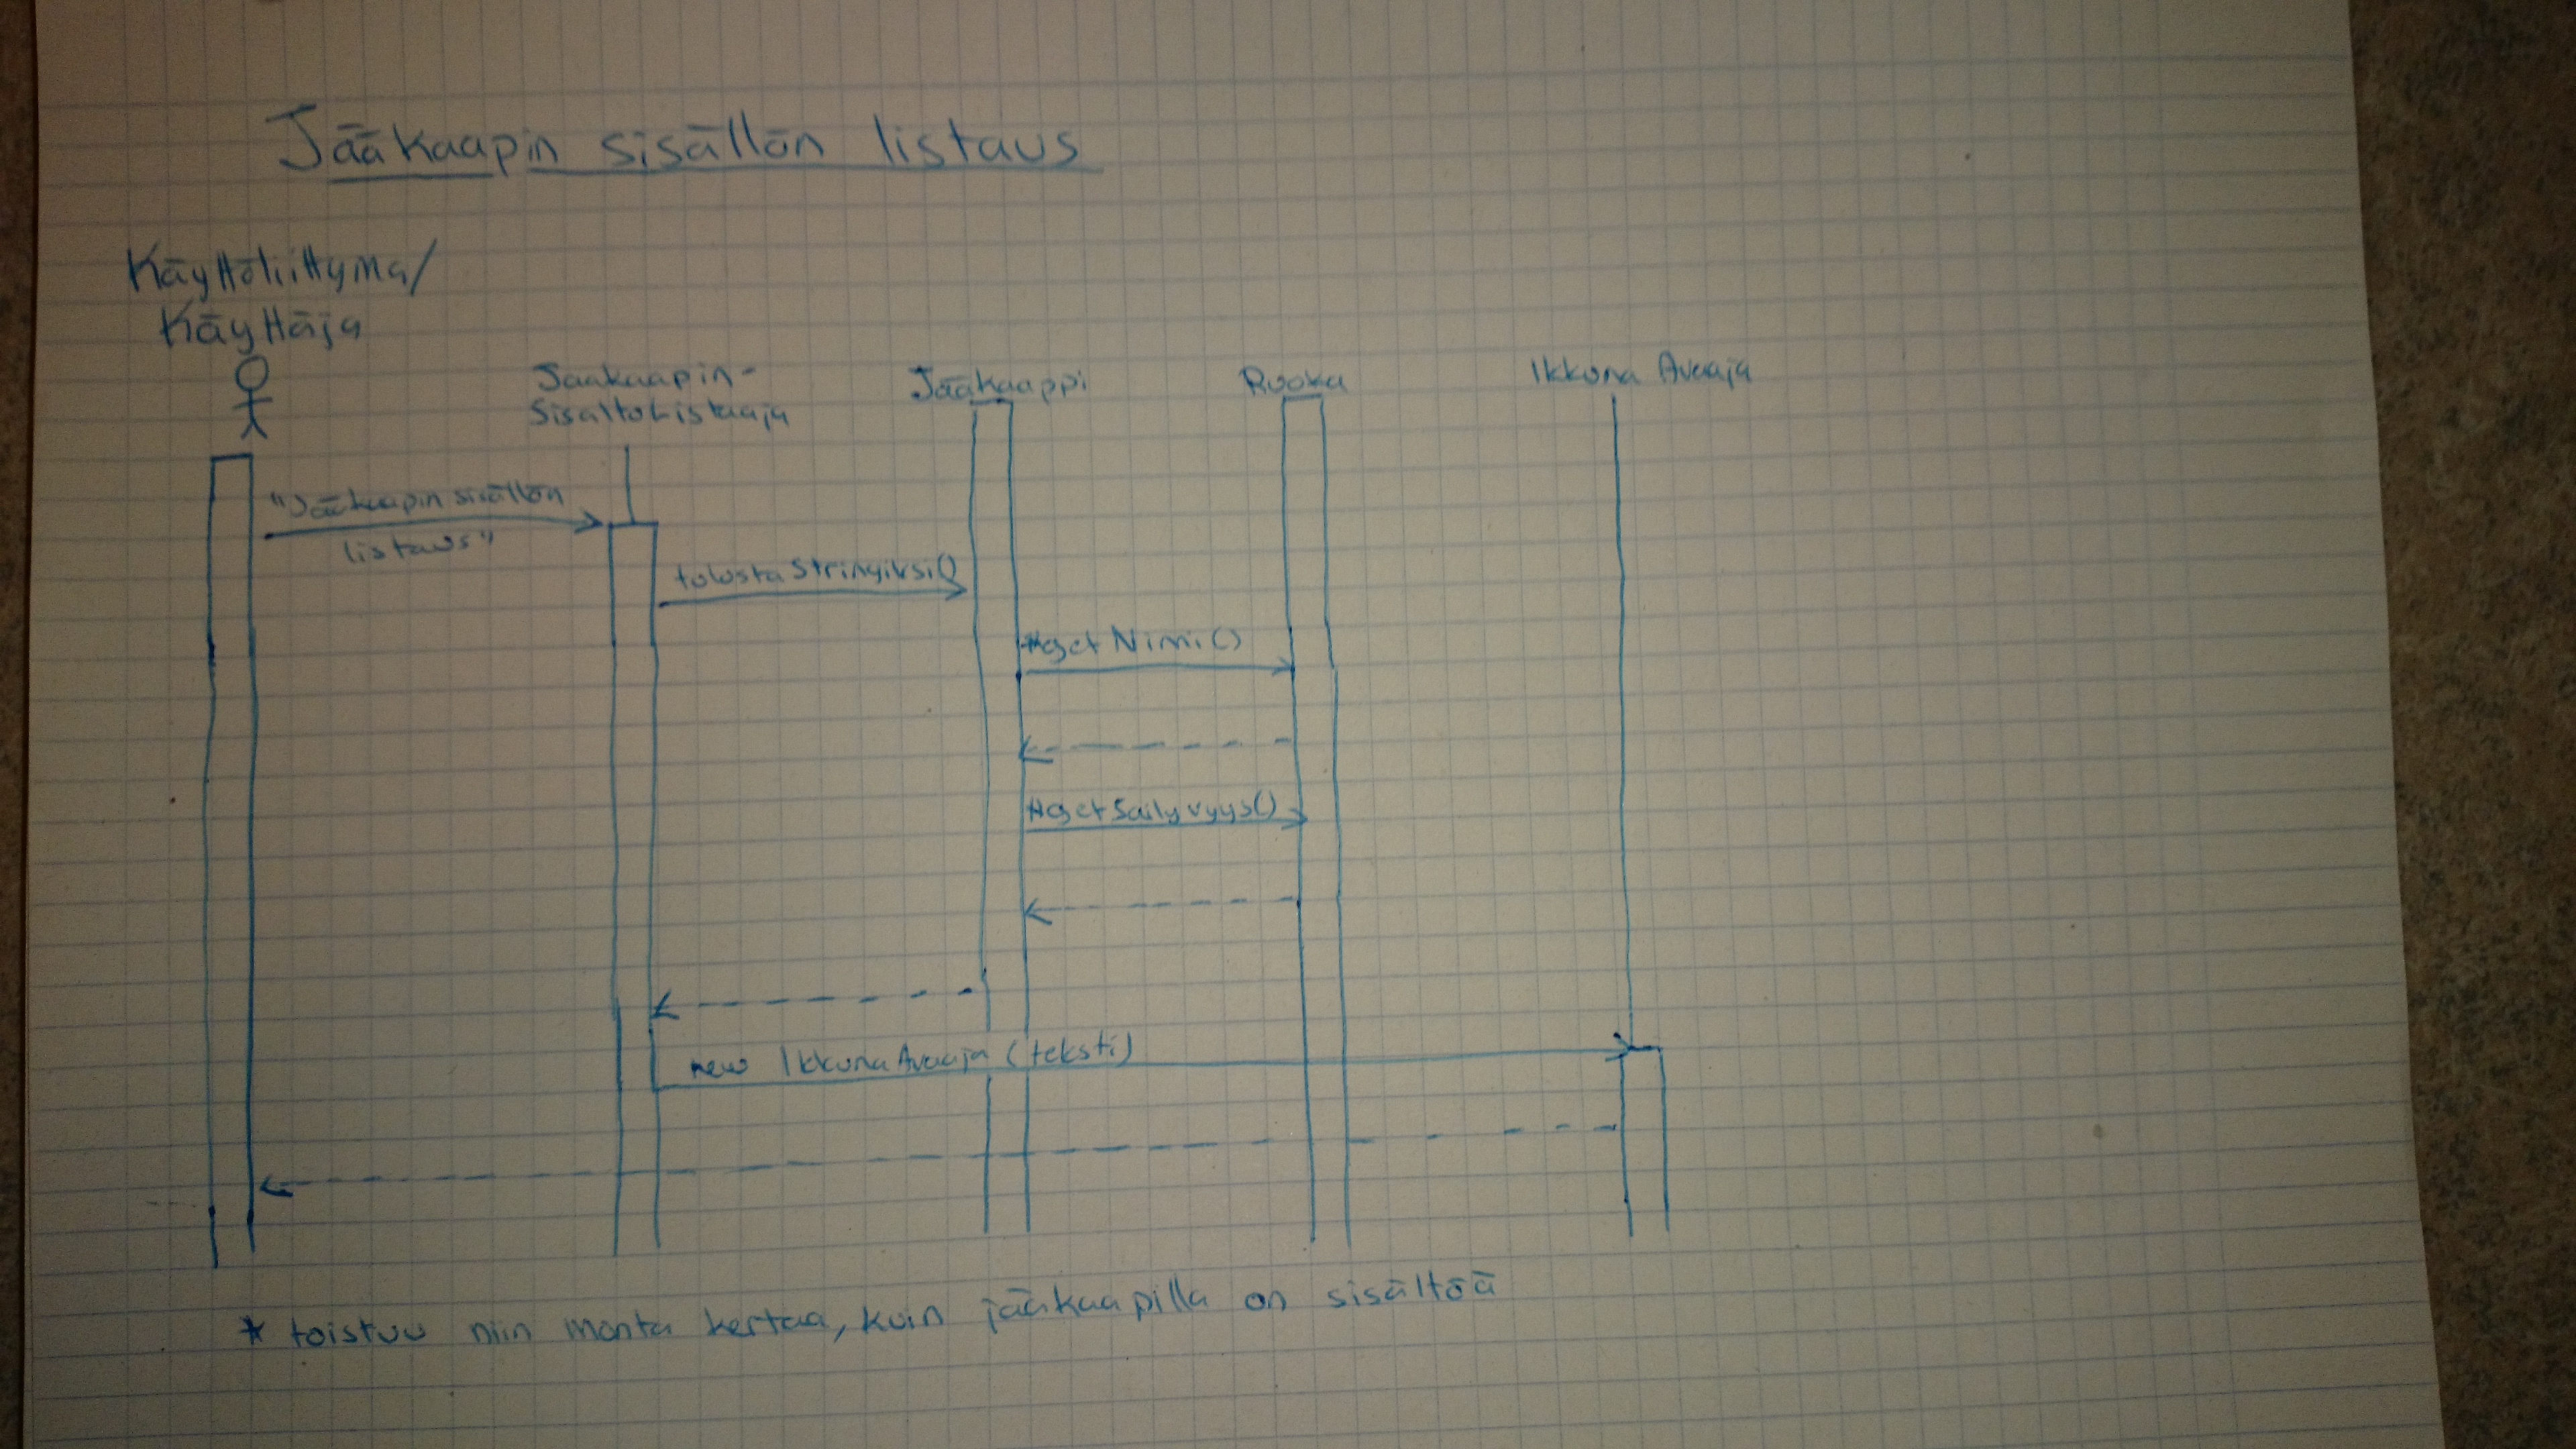 Jääkaapin sisällön listaus
Käyttöliittymä/
Käyttäjä
Jääkaapin-
SisältöListaaja
Jääkaappi
Ruoka
IkkunaAvaaja
"Jääkaapin sisällön
listaus"
tulostaStringiksi()
*getNimi()
*getSailyvyys()
new IkkunaAvaaja (teksti)
* toistuu niin monta kertaa, kuin jääkaapilla on sisältöä